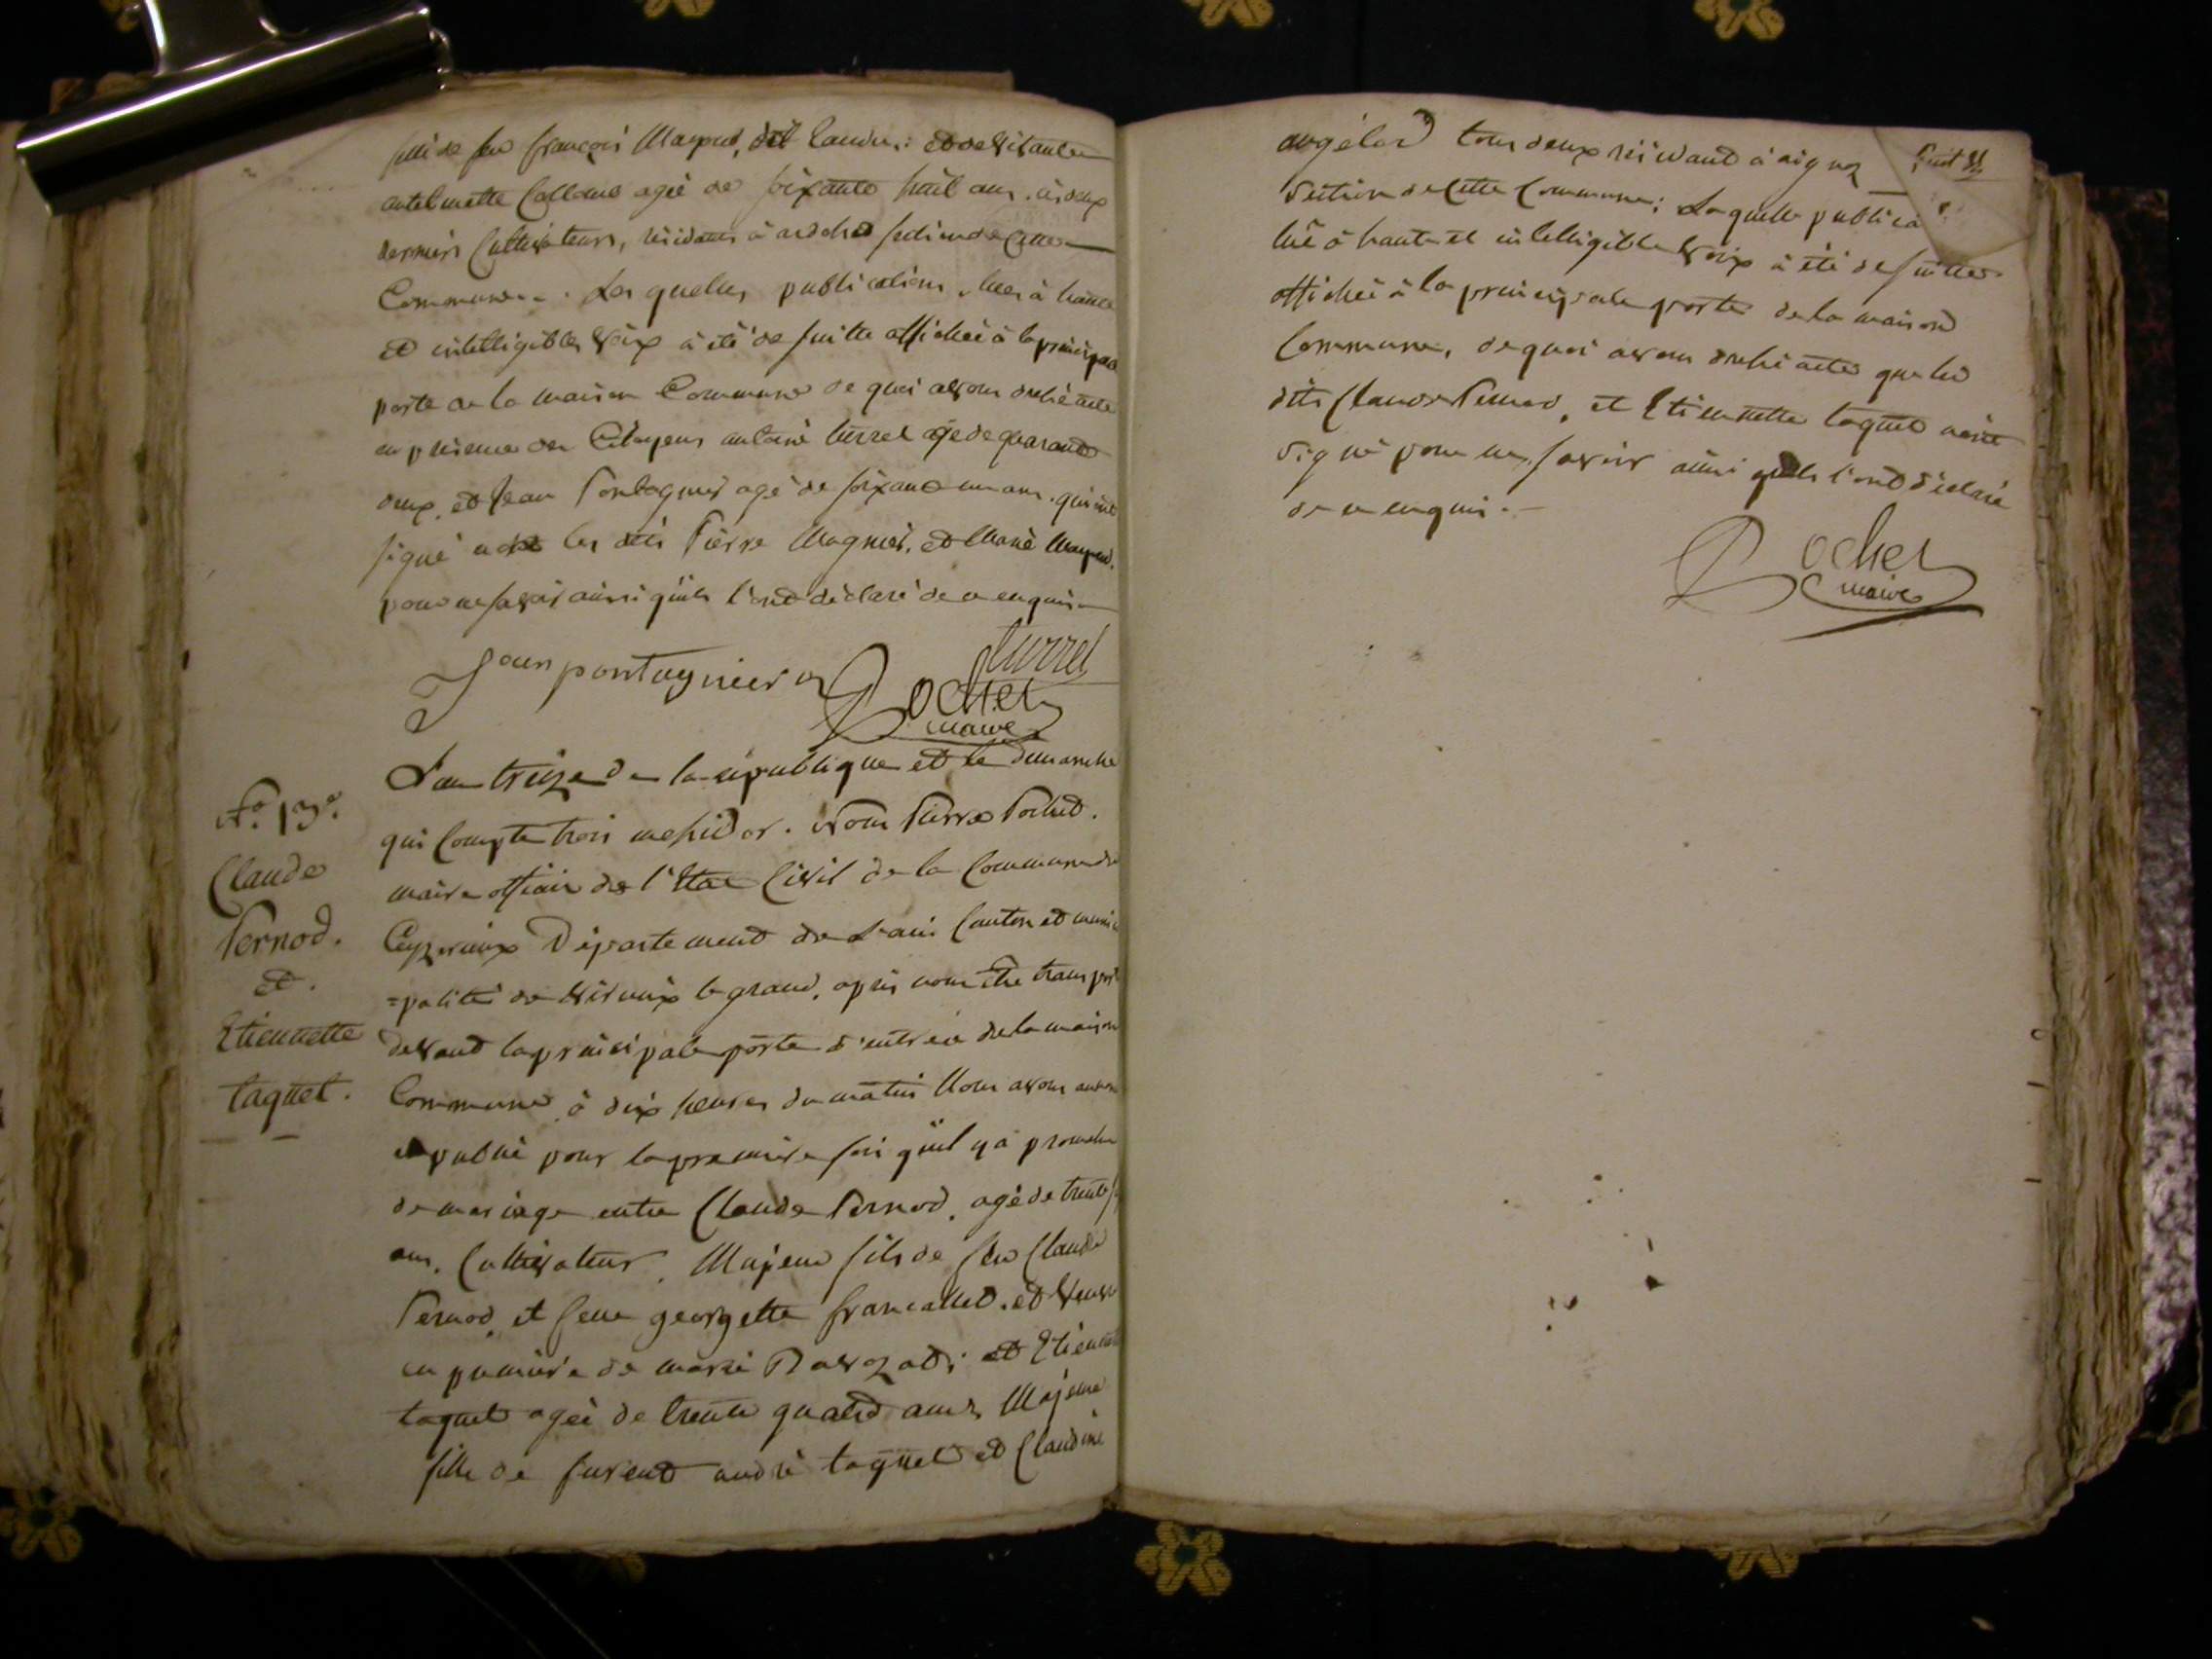 fille de feu françois Maynod, dit Landre: et de vivante
antelmette Callome agée de soixante huit ans. ces deux
derniers Cultivateurs, résidants à ardche section de Cette
Commune. Les quelles publications, lues à haute
et intelligibles voix à été de suitte affichée à la principale
porte de la maison Commune de quoi avons dressé acte
en présence des Citoyens antoine turrel age de quarante
deux, et Jean Pontagnier agé de soixante un ans. qui ont
signé non les dits Pierre Magnin, et Marie Maynod.
pour ne savoir ainsi qu'ils l'ont déclaré de ce enquis
Jean pontagnier
turrel
Rochet
maire
N.º 13.º
Claude
Pernod.
et.
Etiennette
taquet.
L'an treize de la république et le dimanche
qui Compte trois messidor. Nous Pierre Rochet.
maire officier de l'état Civil de la Commune de
Ceyzerieux Département de L'ain Canton et munici
=palité de virieux le grand, après nous être transporté
devant la principale porte d'entrée de la maison
Commune, à dix heures du matin Nous avons annoncé
et publié pour la première fois qu'il y a promesse
de mariage entre Claude Pernod, agé de trente
ans, Cultivateur, Majeur fils de feu Claude
Pernod, et feue georgette francallet. et veuf
en première de marie Ravozat; et Etiennette
taquet agée de trente quatre ans Majeure
fille de furent andré taquet et Claudine
angélod tous deux résidant à aignoz
section de Cette Commune; Laquelle publica
lue à haute et intelligible voix à été de suitte
affichée à la principale porte de la maison
Commune, de quoi avons dressé acte que les
dits Claude Pernod, et Etiennette taquet n'ont
signé pour ne savoir ainsi qu'ils l'ont déclaré
de ce enquis.
Rochet
maire